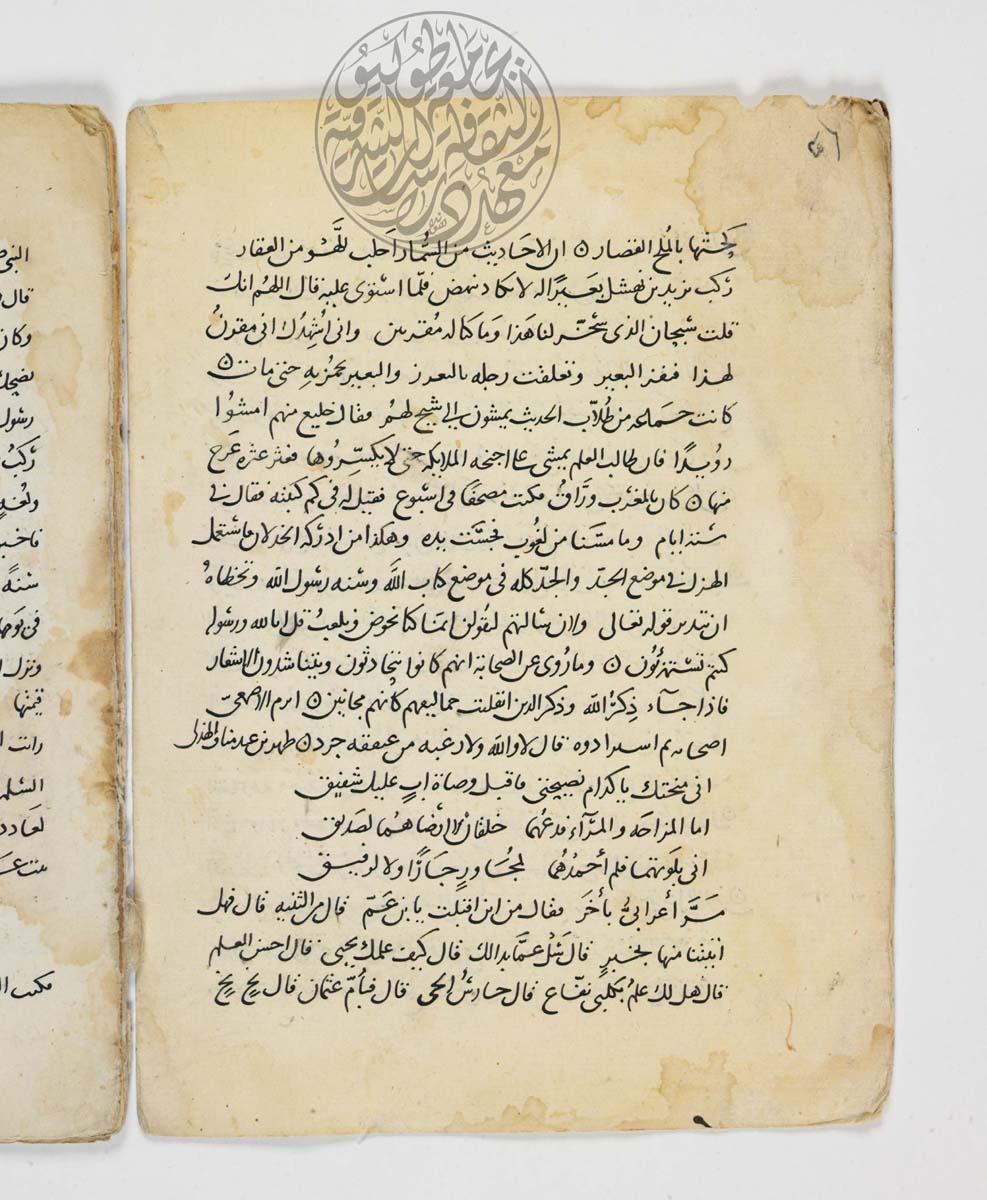 بالملح القصار ٥ ان الاحاديث من السمار احلب للهو من العقار
ركب يزيد بن نهشل بعيرًا له لا يكاد ينهض فلمّا استوى عليه قال اللهم انك
قلت سبحان الذى سخّر لنا هذا وما كنا له مقرنين وانى اُشهِدُك انى مقرنُ
لهذا فنفر البعير وتعلقت رجله بالغرز والبعير يجمز به حتى مات ٥
كانت جماعه من طُلّاب الحديث يمشون الى شيخ لهمُ فقال خليع منهم امشُوا
رويدًا فان طالب العلم يمشى على اجنحه الملايكه حتى لا يكسّروها فعثر عثره عرج
منها ٥ كان بالمغرب ورّاقُ مكتب مصحفًا فى اسبوع فقيل له فى كم كتبته فقال فى
ستة ايام وما مسّنا من لغُوب فجسّت يده وهكذا من ادركه الخدلان
الهزل فى موضع الجدّ والجدّ كله فى موضع كتاب اللَّه وسنه رسول الله وتخطاهُ
ان يتدبر قوله تعالى ولان سألتهم ليقُولن انما كنا نخوض ونلعبُ قل ابالله ورسوله
كنتم تستهزئون ٥ وما رُوى عن الصحابة انهم كانوا يتحادثون ويتناشدون الاشعار
فاذا جآء ذِكرُ الله وذكر الدين انقلبت حماليقهم كانهم مجانين ٥ ابرم الاصمعىّ
اصحابه قال لا والله ولا رغبه من جرد ٥ بن عبد مناف الهذلى
انى منحتك يا كدام نصيحتى فاقبل وصاة ابٍ عليك شفيق
اما المزاحه والمرآء فدعهما خلقان لا ارضاهما لصديق
انى بلوتهما فلم أحمدهُما لمجُاورٍ جارًا ولا لرفيق
مَرَّ أعرابىُّ بأخر فقال من اين اقبلت يا بن عمّ قال من الثنيه قال فهل
اتيتنا منها بخبرٍ قال سَل عمّا بدالك قال كيف علمك بحيى قال احسن العلم
قال هل لك علمُ بكلبى نفّاع قال حارسُ الحى قال فبأمّ عثمان قال بخ بخ